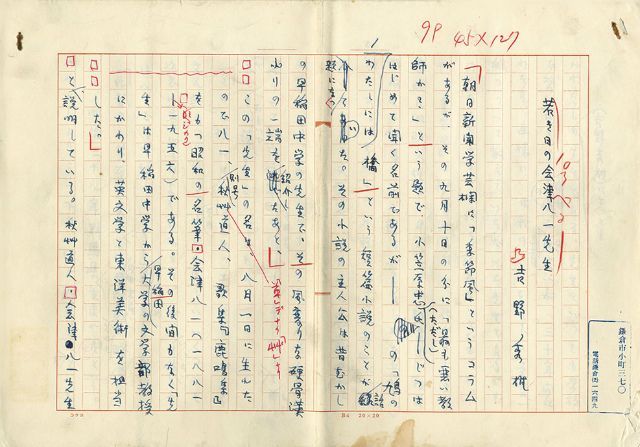 9P 45×127
若き日の会津八一先生
吉野秀雄
鎌倉市小町三七〇
電話鎌倉局一六四九
「朝日新聞学芸欄に「季節風」というコラム
があるが、その九月十日の分に「最も悪い教
師かき」という題で、小笠原忠(ただし)
はじめて聞く名前であるが――の「鳩の
橋」という短篇小説のことが
わたしには
題になっ
その小説の主人公は昔むかし
の早稲田中学の先生で、その風変りな硬骨漢
ぶりの一端を紹介したあと、
この「先生」の名は、八月一日に生れた
ので八一、別号秋艸道人、歌集『鹿鳴集』
をもつ昭和の名筆・会津八一(一八八一
―一九五六)である。その後間もなく「先
生」は早稲田中学から早稲田大学の文学部教授
にかわり、英文学と東洋美術を担当
した。」
と説明している。秋艸道人・会津八一先生
コクヨ
B4 20×20